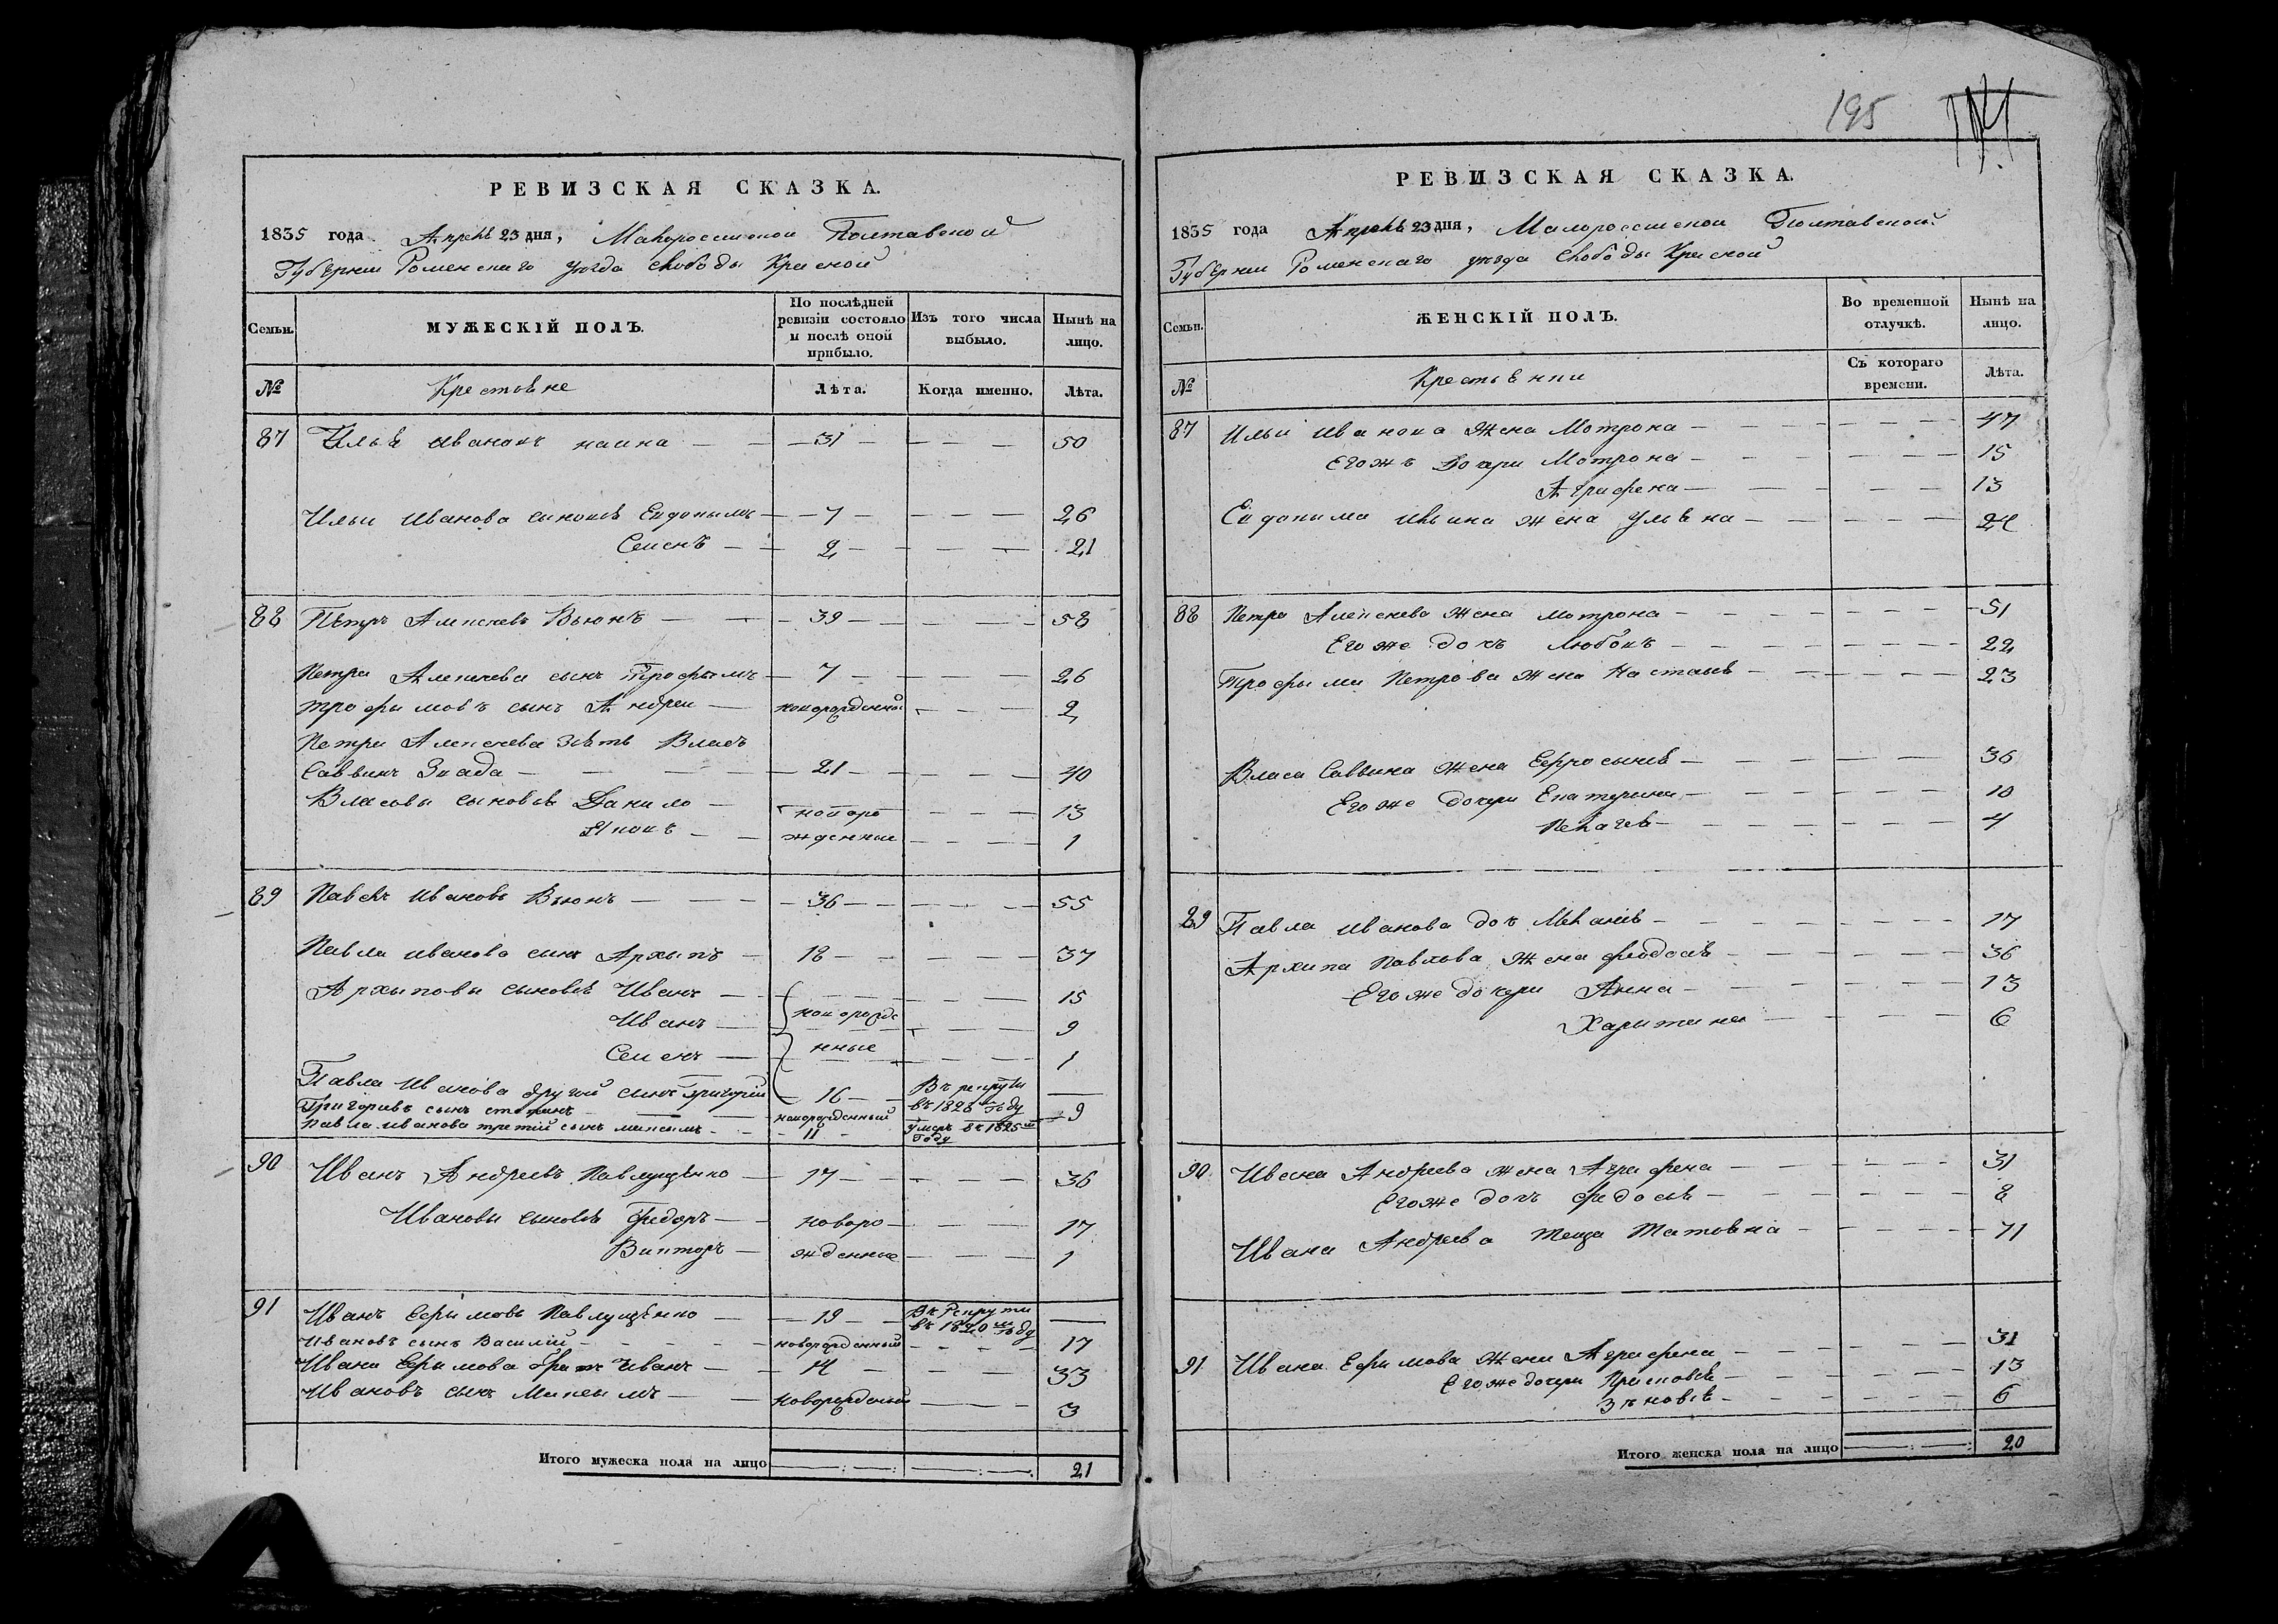 РЕВИЗСКАЯ СКАЗКА.
1835 года Апреля 23 дня, Малороссийской Полтавской
Губернии Роменскаго уезда слободы Красной
Семьи.
МУЖЕСКІЙ ПОЛЪ.
По послѣдней ревизіи состояло и послѣ оной прибыло.
Изъ того числа выбыло.
Нынѣ на лицо.
№
Крестьяне
Лѣта.
Когда именно.
Лѣта.
87 Илья Ивановъ 31 50
Ильи Иванова сыновья Евдокымъ 7 26
Семенъ 2 21
88 Петръ Алексеевъ Вьюнъ 39 58
Петра Алексеева сынъ Трофымъ 7 26
Трофимовъ сынъ Андреи новорожденной 2
Петра Алексеева зять Власъ
Саввинъ 21 40
Власовы сыновья Данило новоро 13
Яковъ жденные 1
89 Павелъ Ивановъ Вьюнъ 36 55
Павла Иванова сынъ Архыпъ 18 37
Архыповы сыновья Иванъ 15
Иванъ новорожде 9
Семенъ нные 1
Павла Иванова другой сынъ Григорій 16 Въ рекруты въ 1828 м году
Григорьевъ сынъ новорожденный 9
Павла Иванова третій сынъ Максымъ 11 Умеръ въ 1825 м году
90 Иванъ Андреевъ Павлущенко 17 36
Ивановы сыновья Федоръ новоро 17
Викторъ жденные 1
91 Иванъ Ефимовъ Павлущенко 19 Въ Рекруты въ 1820 м году
Ивановъ сынъ Василій новорожденный 17
Ивана Ефимова братъ Иванъ 14 33
Ивановъ сынъ Максымъ новорожденный 3
Итого мужеска пола на лицо 21
195
РЕВИЗСКАЯ СКАЗКА.
1835 года Апреля 23 дня, Малороссийской Полтавской
Губернии Роменскаго уезда слободы Красной
Семьи.
ЖЕНСКІЙ ПОЛЪ.
Во временной отлучкѣ.
Нынѣ на лицо.
№
Крестьянки
Съ котораго времени.
Лѣта.
87 Ильи Иванова жена Мотрона 47
Егожъ дочери Мотрона 15
Агрифена 13
Евдокима Ильина жена Ульяна 24
88 Петра Алексеева жена Мотрона 51
Его же дочь Любовъ 22
Трофыма Петрова жена Настасья 23
Власа Саввина жена Ефросынья 36
Его же дочери Екатерина 10
Пелагея 4
89 Павла Иванова дочь Меланья 17
Архипа Павлова жена Феодосья 36
Его же дочери Анна 13
Харитина 6
90 Ивана Андреева жена Агрифена 31
Его же дочь Федосья 8
Ивана Андреева теща Татьяна 71
91 Ивана Ефимова жена Агрифена 31
Его же дочери 13
Зѣновья 6
Итого женска пола на лицо 20